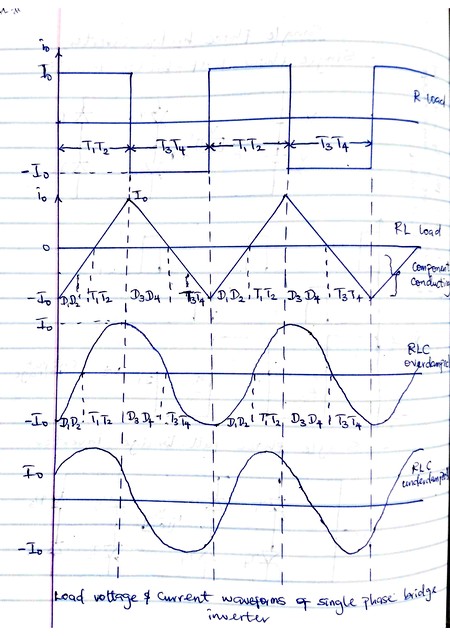 i₀
I₀
R load
T₁T₂ T₃T₄ T₁T₂ T₃T₄
-I₀
i₀ I₀
RL load
0
Component
conducting
-I₀ D₁D₂ T₁T₂ D₃D₄ T₃T₄ D₁D₂ T₁T₂ D₃D₄ T₃T₄
I₀
RLC
overdamped
-I₀ D₁D₂ T₁T₂ D₃D₄ T₃T₄ D₁D₂ T₁T₂ D₃D₄ T₃T₄
I₀
RLC
underdamped
-I₀
Load voltage & current waveforms of single phase bridge
inverter